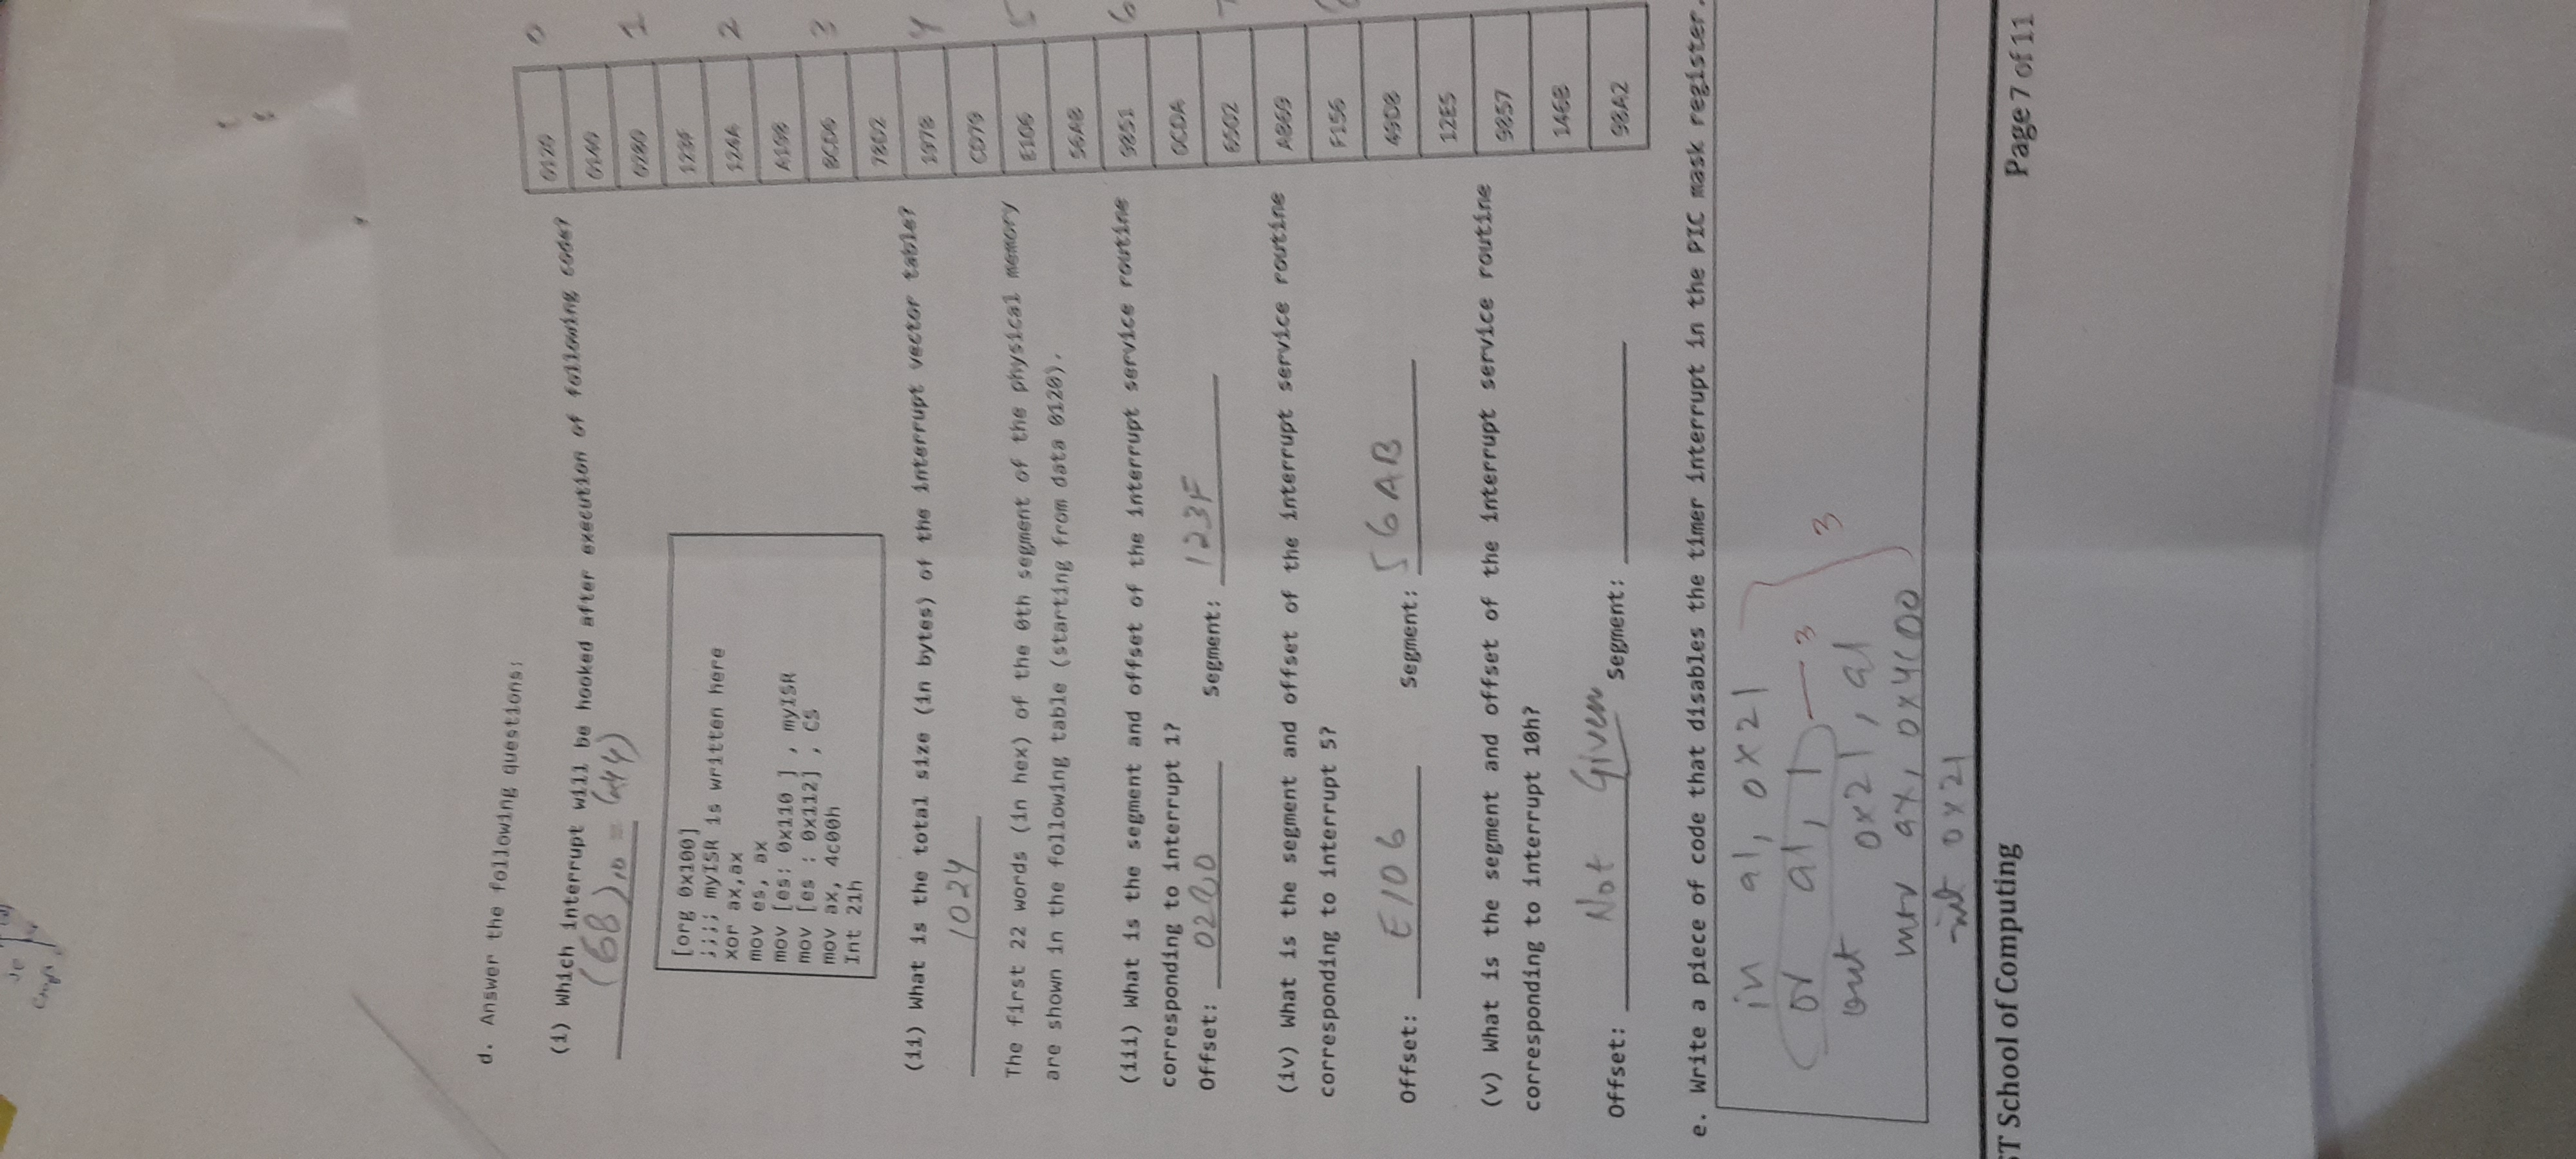 d. Answer the following questions:
(i) Which interrupt will be hooked after execution of following code?
(68)10 = (44)
[org 0x100]
;;;; myISR is written here
xor ax,ax
mov es, ax
mov [es: 0x110 ] , myISR
mov [es : 0x112] , CS
mov ax, 4c00h
Int 21h
(ii) What is the total size (in bytes) of the interrupt vector table?
1024
The first 22 words (in hex) of the 0th segment of the physical memory
are shown in the following table (starting from data 0120).
(iii) What is the segment and offset of the interrupt service routine
corresponding to interrupt 1?
Offset: 0280 Segment: 123F
(iv) What is the segment and offset of the interrupt service routine
corresponding to interrupt 5?
Offset: E106 Segment: 56AB
(v) What is the segment and offset of the interrupt service routine
corresponding to interrupt 10h?
Offset: Not Given Segment:
0120 0
0140
0280 1
123F
124A 2
A198
BCD6 3
7802
1978 4
CD79
E106 5
56AB
9851 6
0CDA
6502
A869
F156
49D8
12E5
9857
1468
98A2
e. Write a piece of code that disables the timer interrupt in the PIC mask register.
in al, 0x21
or al, 1 3
out 0x21, al 3
mov ax, 0x4C00
int 0x21
ST School of Computing
Page 7 of 11